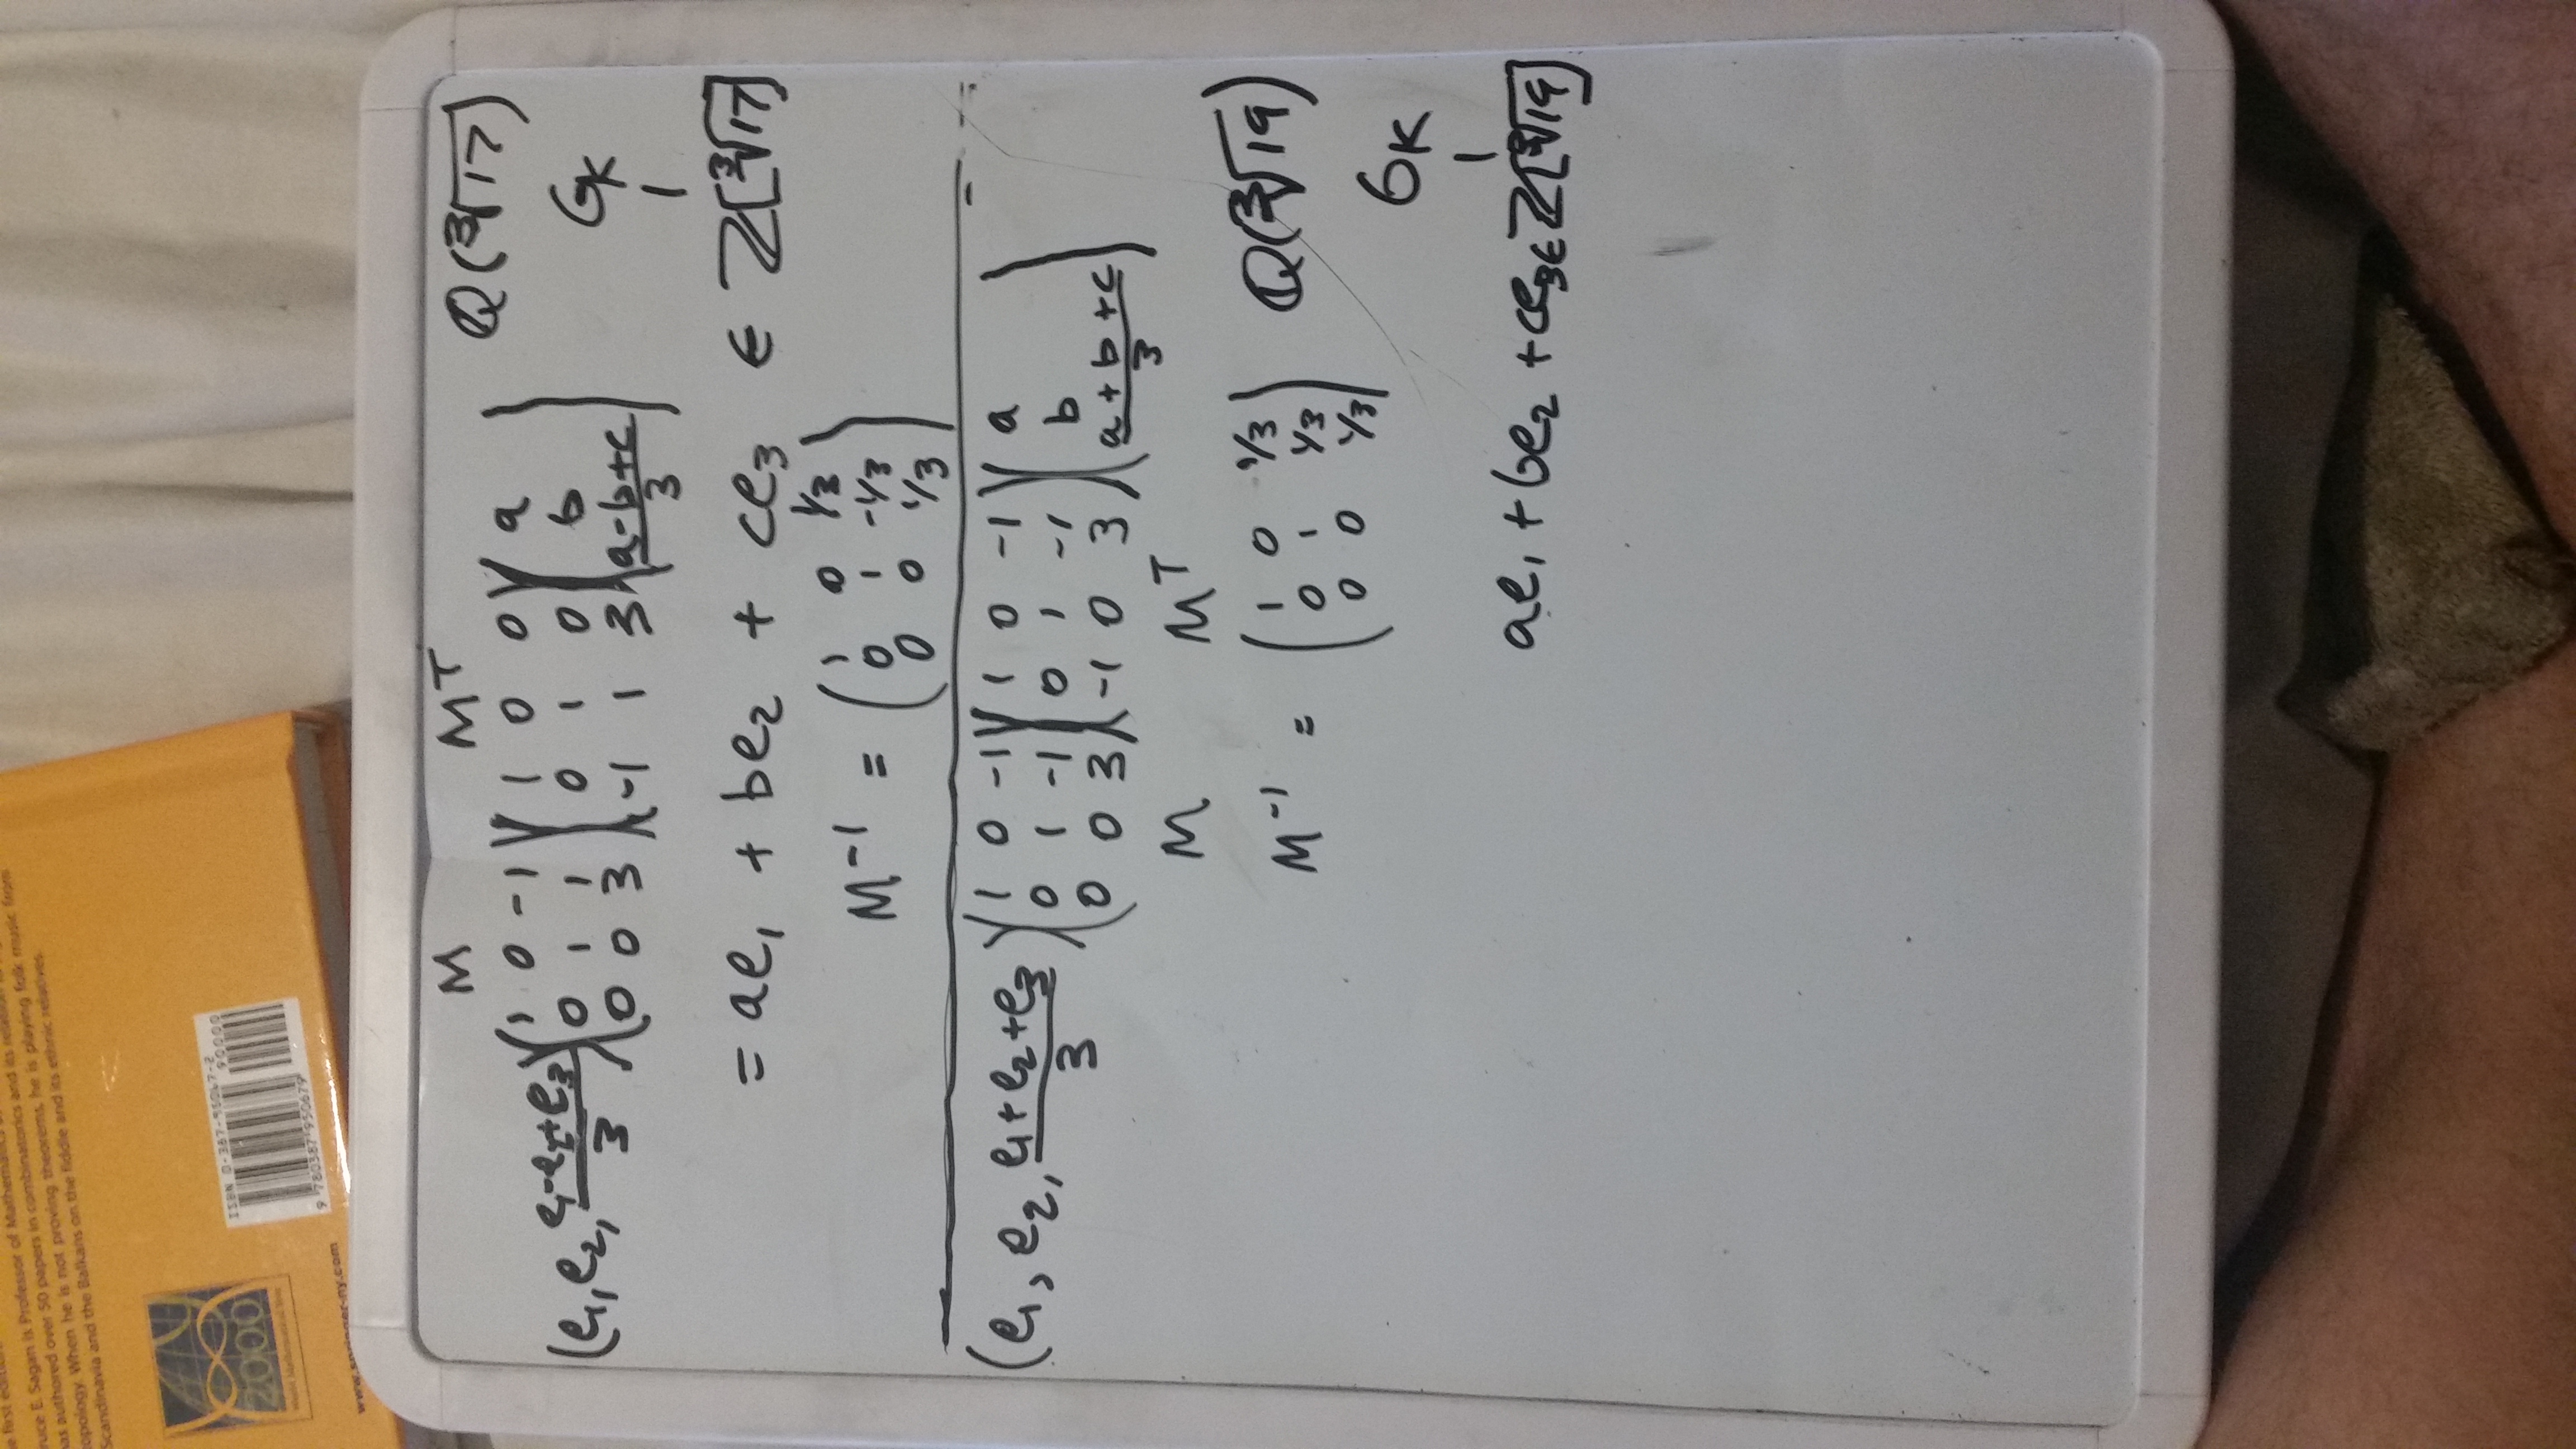 ruce E. Sagan is Professor of Mathematics
as authored over 50 papers in combinatorics and its relation
opology. When he is not proving theorems, he is playing folk music from
Scandinavia and the Balkans on the fiddle and its ethnic relatives.
ISBN 0-387-95067-2
90000
2000
9 780387 950679
www.springer-ny.com
M M^T ℚ(∛17)
(e₁, e₂, (e₁-e₂+e₃)/3) (1 0 -1; 0 1 1; 0 0 3) (1 0 0; 0 1 0; -1 1 3) (a; b; (a-b+c)/3)
𝒪_K
|
= ae₁ + be₂ + ce₃ ∈ ℤ[∛17]
M⁻¹ = (1 0 1/3; 0 1 -1/3; 0 0 1/3)
(e₁, e₂, (e₁+e₂+e₃)/3) (1 0 -1; 0 1 -1; 0 0 3) (1 0 -1; 0 1 -1; -1 0 3) (a; b; (a+b+c)/3)
M M^T
M⁻¹ = (1 0 1/3; 0 1 1/3; 0 0 1/3) ℚ(∛19)
𝒪_K
|
ae₁ + be₂ + ce₃ ∈ ℤ[∛19]